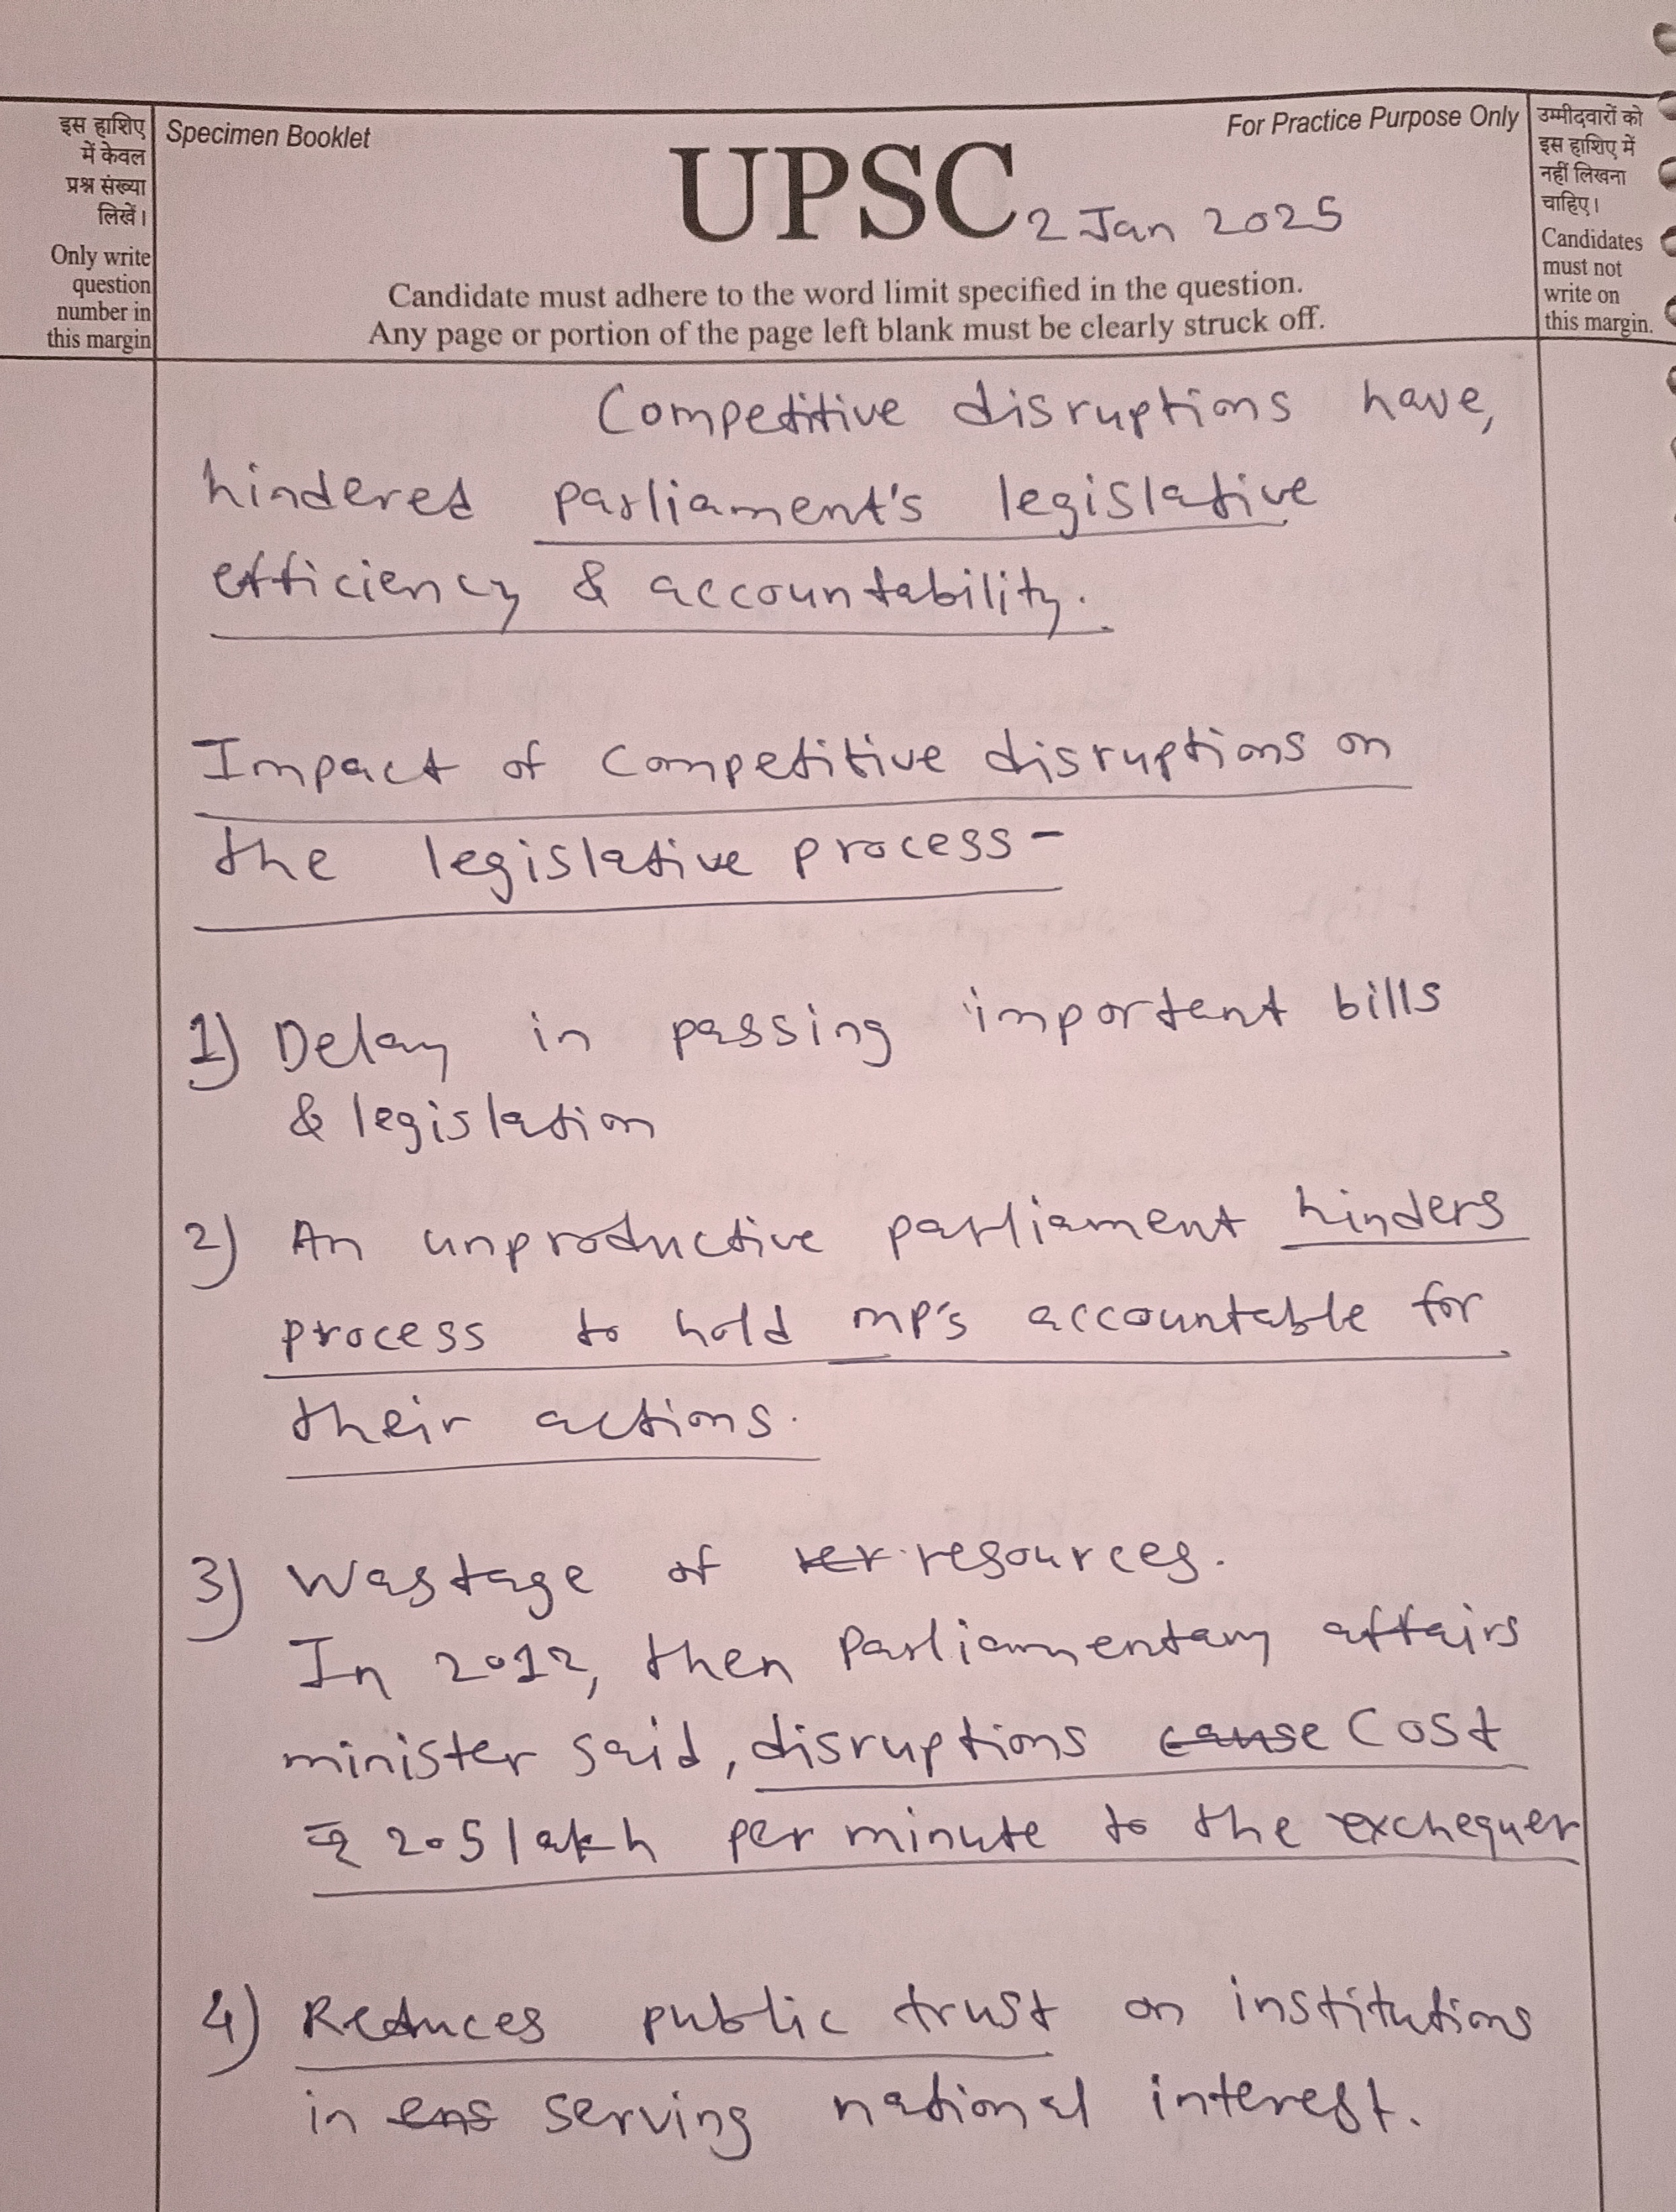 इस हाशिए
में केवल
प्रश्न संख्या
लिखें।
Only write
question
number in
this margin
Specimen Booklet
For Practice Purpose Only
UPSC
2 Jan 2025
Candidate must adhere to the word limit specified in the question.
Any page or portion of the page left blank must be clearly struck off.
उम्मीदवारों को
इस हाशिए में
नहीं लिखना
चाहिए।
Candidates
must not
write on
this margin.
Competitive disruptions have,
hindered parliament's legislative
efficiency & accountability.
Impact of Competitive disruptions on
the legislative process-
1) Delay in passing important bills
& legislation
2) An unproductive parliament hinders
process to hold mp's accountable for
their actions.
3) Wastage of rer resources.
In 2012, then Parliamentary affairs
minister said, disruptions cause Cost
₹ 2.5 lakh per minute to the exchequer
4) Reduces public trust on institutions
in ens serving national interest.